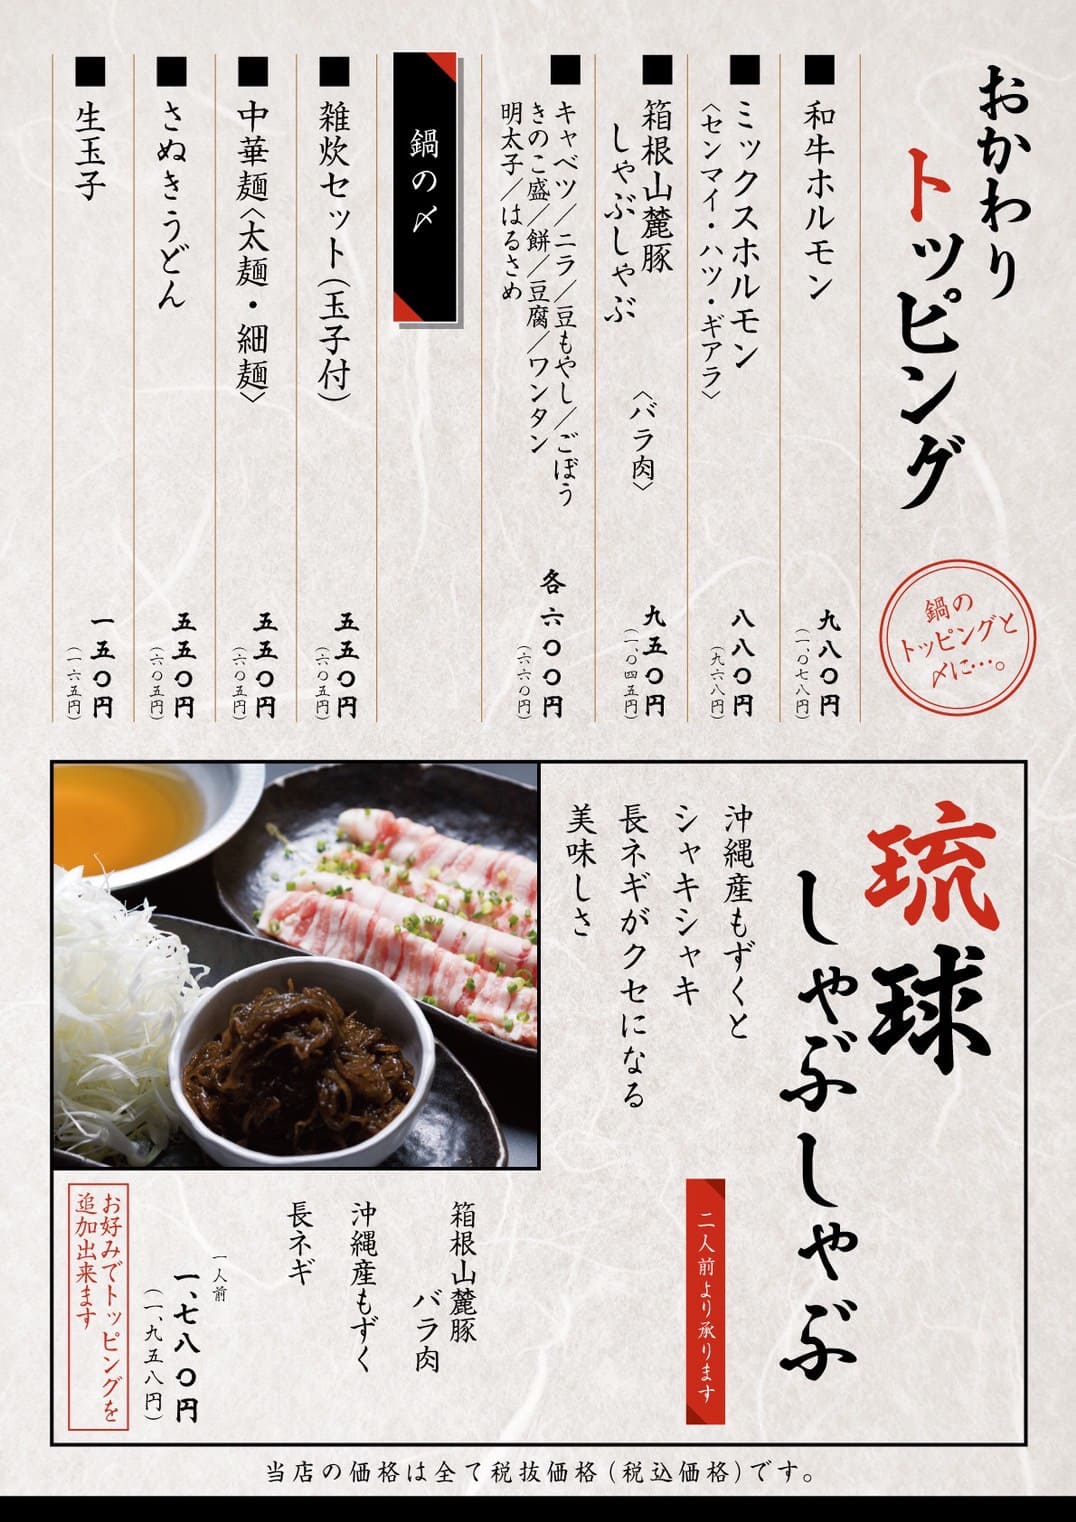 おかわり
トッピング
鍋の
トッピングと
〆に…。
■和牛ホルモン
九八〇円
(一、〇七八円)
■ミックスホルモン
〈センマイ・ハツ・ギアラ〉
八八〇円
(九六八円)
■箱根山麓豚
しゃぶしゃぶ
〈バラ肉〉
九五〇円
(一、〇四五円)
■キャベツ／ニラ／豆もやし／ごぼう
きのこ盛／餅／豆腐／ワンタン
明太子／はるさめ
各六〇〇円
(六六〇円)
鍋の〆
■雑炊セット(玉子付)
五五〇円
(六〇五円)
■中華麺〈太麺・細麺〉
五五〇円
(六〇五円)
■さぬきうどん
五五〇円
(六〇五円)
■生玉子
一五〇円
(一六五円)
琉球
しゃぶしゃぶ
沖縄産もずくと
シャキシャキ
長ネギがクセになる
美味しさ
二人前より承ります
箱根山麓豚
バラ肉
沖縄産もずく
長ネギ
一人前
一、七八〇円
(一、九五八円)
お好みでトッピングを
追加出来ます
当店の価格は全て税抜価格(税込価格)です。